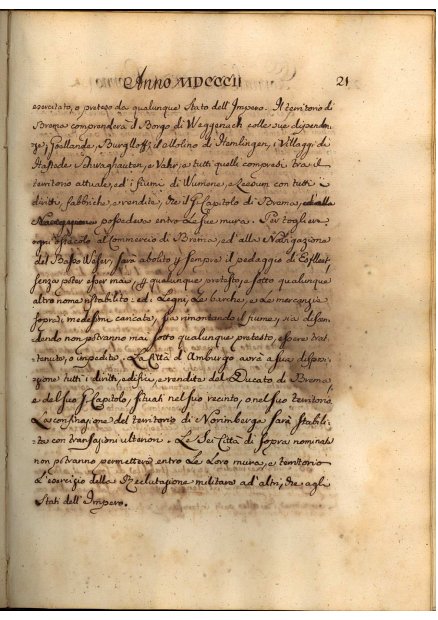 Anno MDCCCII 21
esercitato, o preteso da qualunque Stato dell'Impero. Il territorio di
Brema comprenderà il Borgo di Weggenack colle sue dipenden-
ze; Grollande, Burgllof; il Molino di Hemlingen, i Villaggi di
Hastede Schwaghausen, e Vahr, e tutti quelli compresi tra il
territorio attuale, ed i fiumi di Wumone, e Leesum con tutti i
diritti, fabbriche, e rendite, che il Capitolo di Brema,
possedeva entro le sue mura. Per togliere
ogni ostacolo al Commercio di Brema, ed alla Navigazione
del Basso Weser, sarà abolito p sempre il pedaggio di Esfleet,
senza poter esser mai p qualunque pretesto, e sotto qualunque
altro nome ristabilito: ed i Legni, le barche, e le mercanzie
sopra medesime caricate, sia rimontando il fiume, sia discen-
dendo non potranno mai sotto qualunque pretesto, essere trat-
tenute, o impedite. La Città d'Amburgo avrà a sua dispo-
sizione tutti i diritti, edifizi, e rendite del Ducato di Brema,
e del suo Capitolo, situati nel suo recinto, o nel suo territorio
La confinazione del territorio di Norimberga sarà stabili-
ta con transazioni ulteriori. Le Sei Città di sopra nominate
non potranno permettere entro le loro mura, e territorio
l'esercizio della Reclutazione militare ad altri, che agli
Stati dell'Impero.